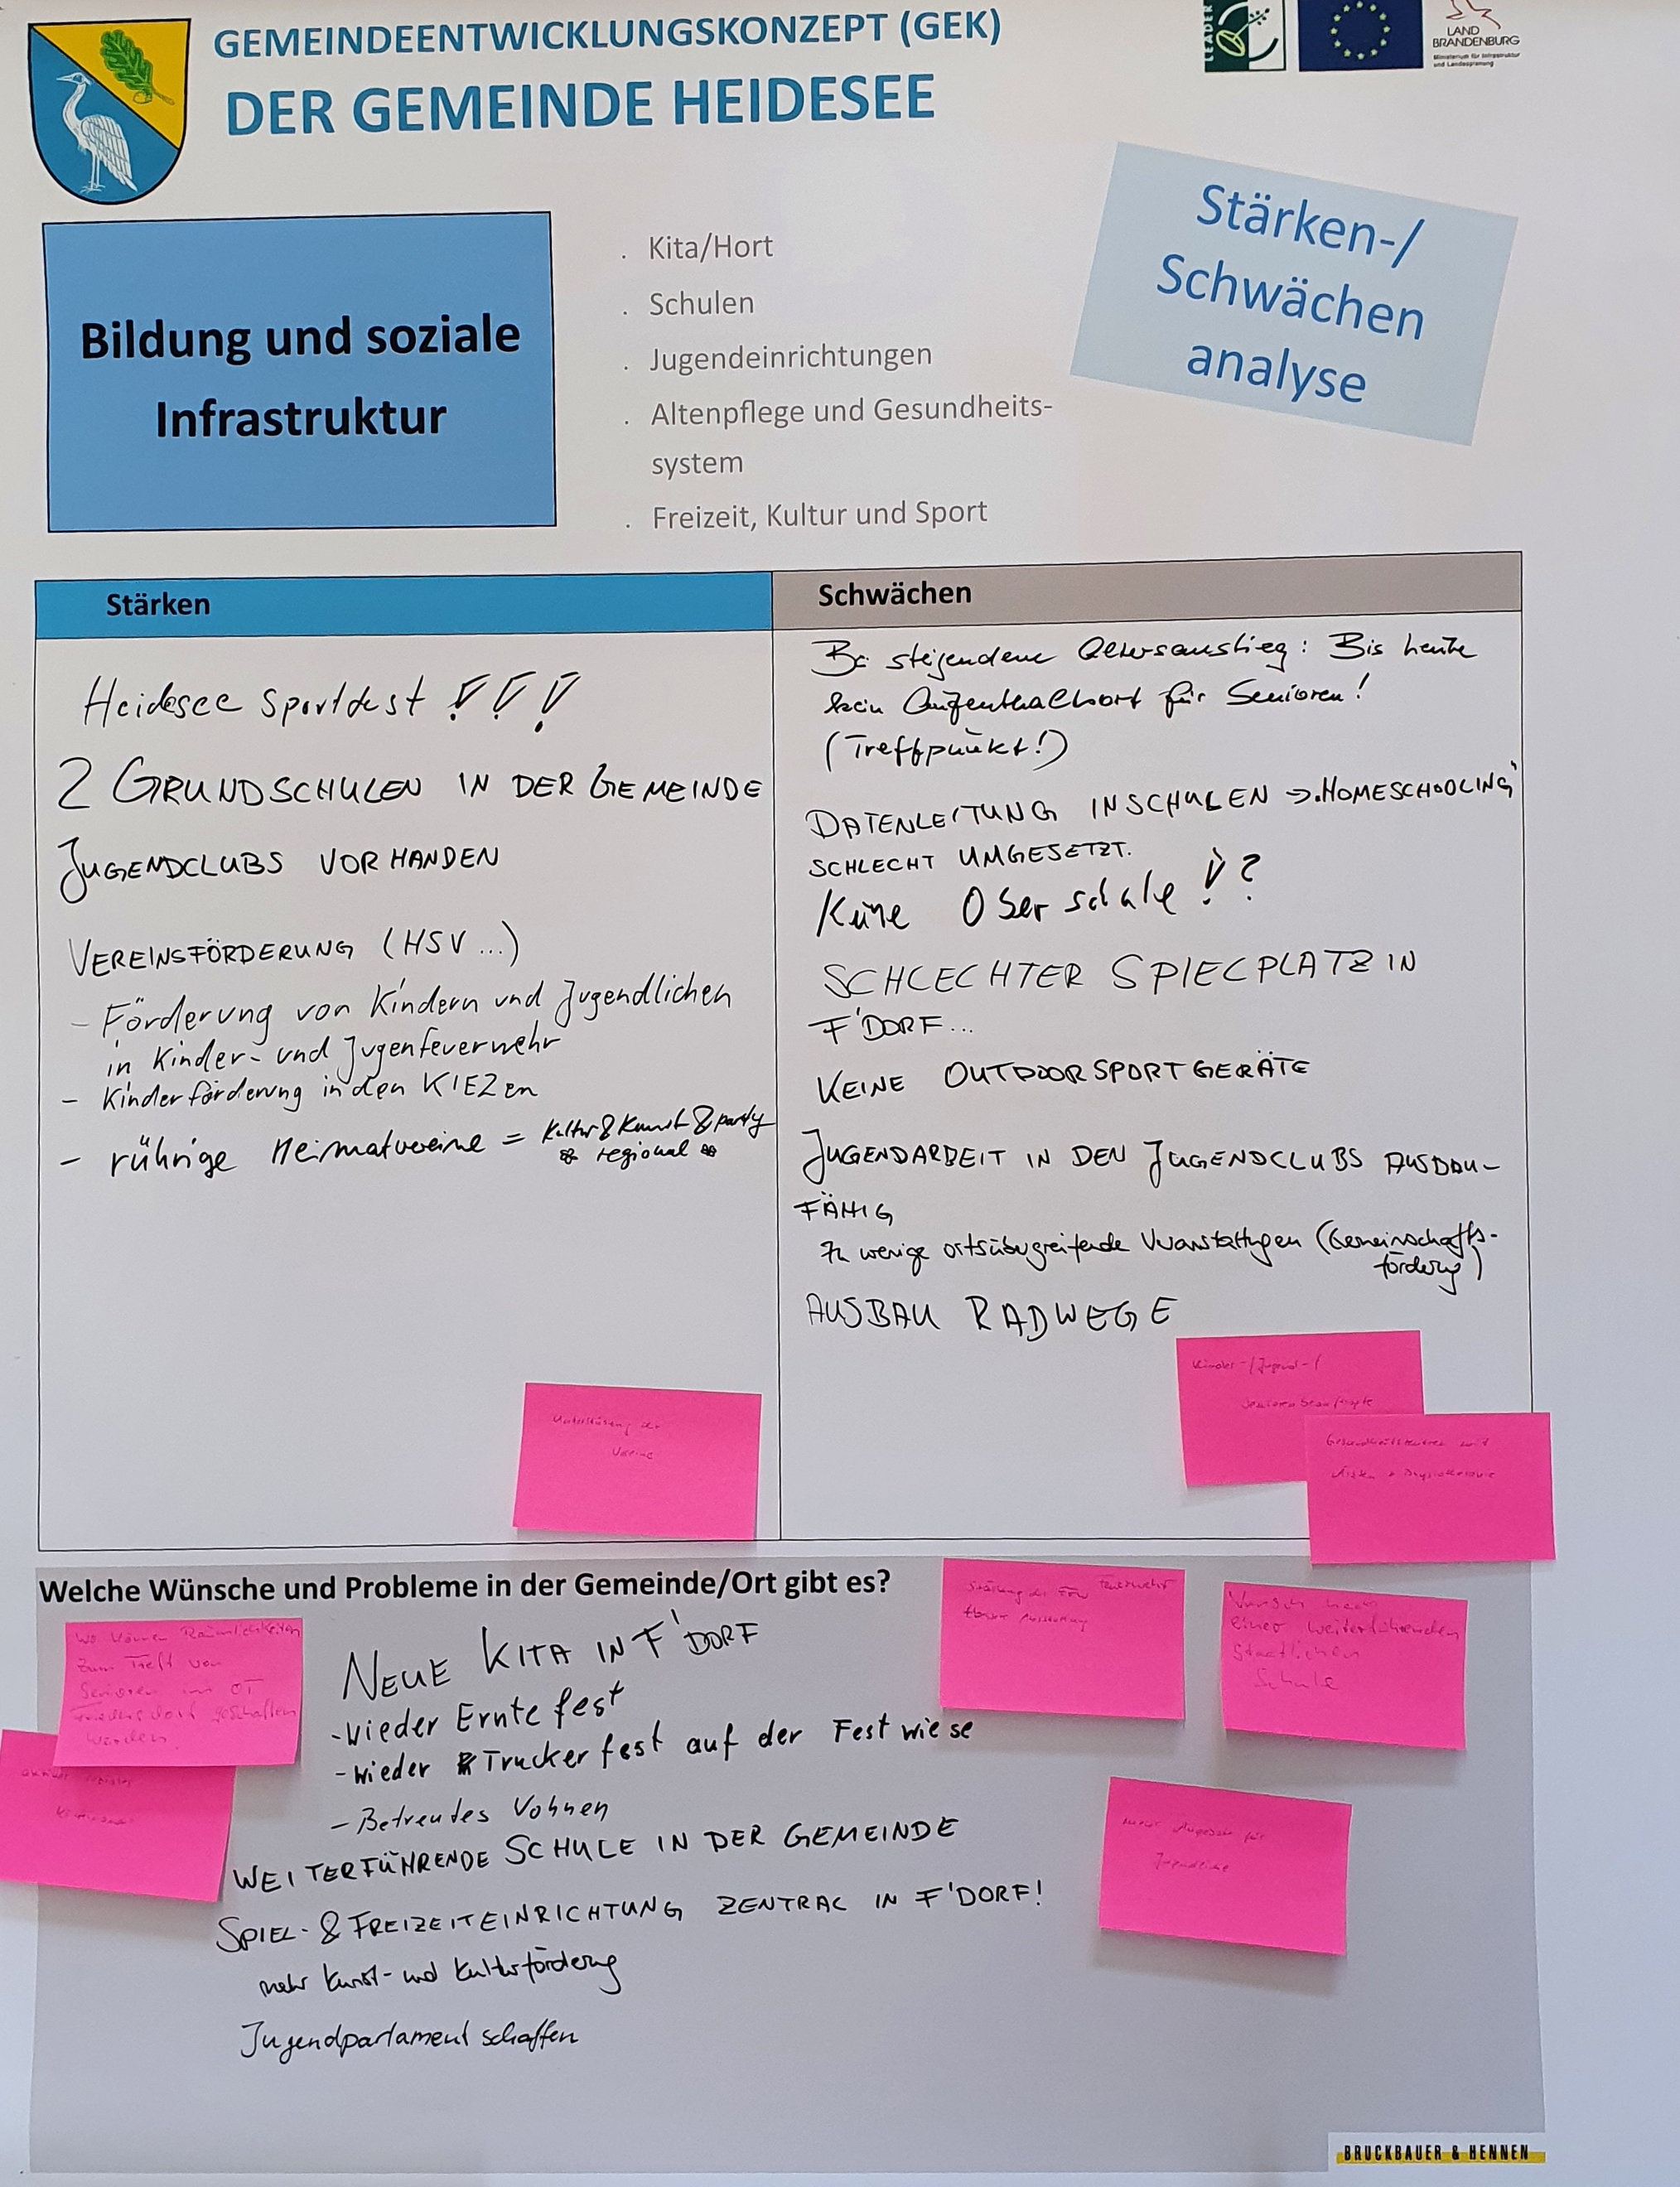 GEMEINDEENTWICKLUNGSKONZEPT (GEK)
DER GEMEINDE HEIDESEE
LEADER
LAND
BRANDENBURG
Ministerium für Infrastruktur
und Landesplanung
Stärken-/
Schwächen
analyse
Bildung und soziale
Infrastruktur
. Kita/Hort
. Schulen
. Jugendeinrichtungen
. Altenpflege und Gesundheits-
system
. Freizeit, Kultur und Sport
Stärken
Heidesee Sportfest !!!
2 GRUNDSCHULEN IN DER GEMEINDE
JUGENDCLUBS VORHANDEN
VEREINSFÖRDERUNG (HSV ...)
- Förderung von Kindern und Jugendlichen
in Kinder- und Jugenfeuerwehr
- Kinderförderung in den KIEZen
- rührige Heimatvereine = Kultur & Kunst & party
regional
Unterstützung der
Vereine
Schwächen
Bei steigendem Altersanstieg: Bis heute
kein Aufenthaltsort für Senioren!
(Treffpunkt!)
DATENLEITUNG IN SCHULEN => "HOMESCHOOLING"
SCHLECHT UMGESETZT.
Keine Oberschule !?
SCHLECHTER SPIELPLATZ IN
F'DORF...
KEINE OUTDOORSPORTGERÄTE
JUGENDARBEIT IN DEN JUGENDCLUBS AUSBAU-
FÄHIG
Zu wenige ortsübergreifende Veranstaltungen (Gemeinschafts-
förderung)
AUSBAU RADWEGE
Kinder-/Jugend-/
Seniorenbeauftragte
Gesundheitszentrum mit
Ärzten + Physiotherapie
Welche Wünsche und Probleme in der Gemeinde/Ort gibt es?
Wo können Räumlichkeiten
zum Treff von
Senioren im OT
Friedersdorf geschaffen
werden
NEUE KITA IN F'DORF
- wieder Erntefest
- wieder Truckerfest auf der Festwiese
- Betreutes Wohnen
WEITERFÜHRENDE SCHULE IN DER GEMEINDE
SPIEL- & FREIZEITEINRICHTUNG ZENTRAL IN F'DORF!
mehr Kunst- und Kulturförderung
Jugendparlament schaffen
Stärkung der Feuerwehr
Wunsch nach
einer weiterführenden
staatlichen
Schule
mehr Angebote für
Jugendliche
BRUCKBAUER & HENNEN